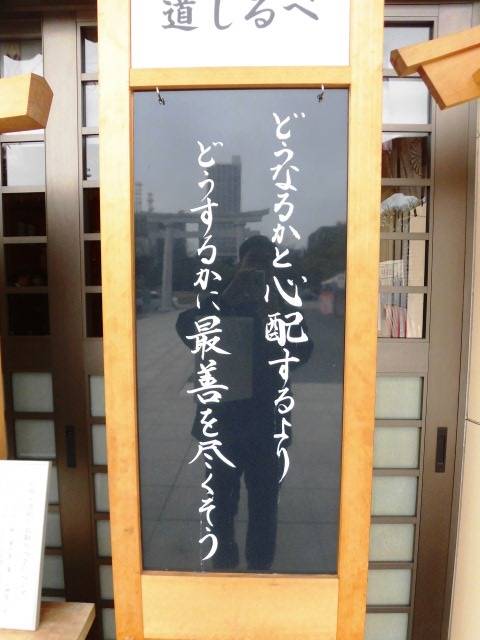 道しるべ
どうなるかと心配するより
どうするかに最善を尽くそう